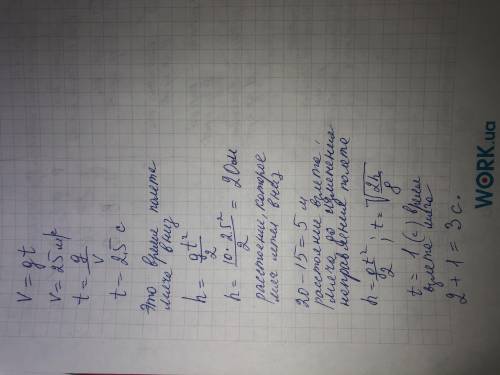 V = gt
V = 25 м/с
t = g/V
t = 25 с
Это время полета
мяча вниз
h = gt²/2
h = 10·25²/2 = 20м
расстояние, которое
мяч летел вниз
20 - 15 = 5 м
расстояние взлета
мяча до изменения
направления полета
h = gt²/2 ; t = √2h/g
t = 1 (с) время
взлета мяча
2 + 1 = 3 с.
WORK.ua